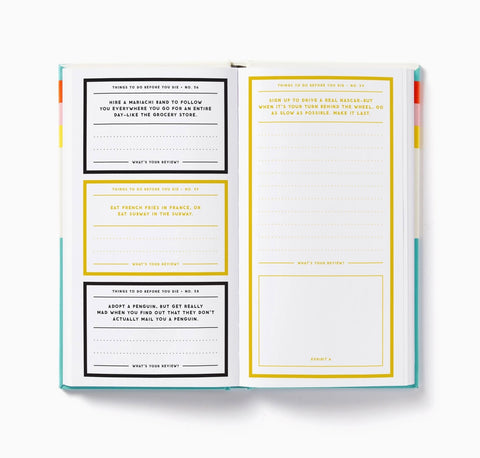 THINGS TO DO BEFORE YOU DIE • NO. 36
HIRE A MARIACHI BAND TO FOLLOW
YOU EVERYWHERE YOU GO FOR AN ENTIRE
DAY—LIKE THE GROCERY STORE.
WHAT'S YOUR REVIEW?
THINGS TO DO BEFORE YOU DIE • NO. 37
EAT FRENCH FRIES IN FRANCE, OR
EAT SUBWAY IN THE SUBWAY.
WHAT'S YOUR REVIEW?
THINGS TO DO BEFORE YOU DIE • NO. 38
ADOPT A PENGUIN, BUT GET REALLY
MAD WHEN YOU FIND OUT THAT THEY DON'T
ACTUALLY MAIL YOU A PENGUIN.
WHAT'S YOUR REVIEW?
THINGS TO DO BEFORE YOU DIE • NO. 39
SIGN UP TO DRIVE A REAL NASCAR—BUT
WHEN IT'S YOUR TURN BEHIND THE WHEEL, GO
AS SLOW AS POSSIBLE. MAKE IT LAST.
WHAT'S YOUR REVIEW?
EXHIBIT A